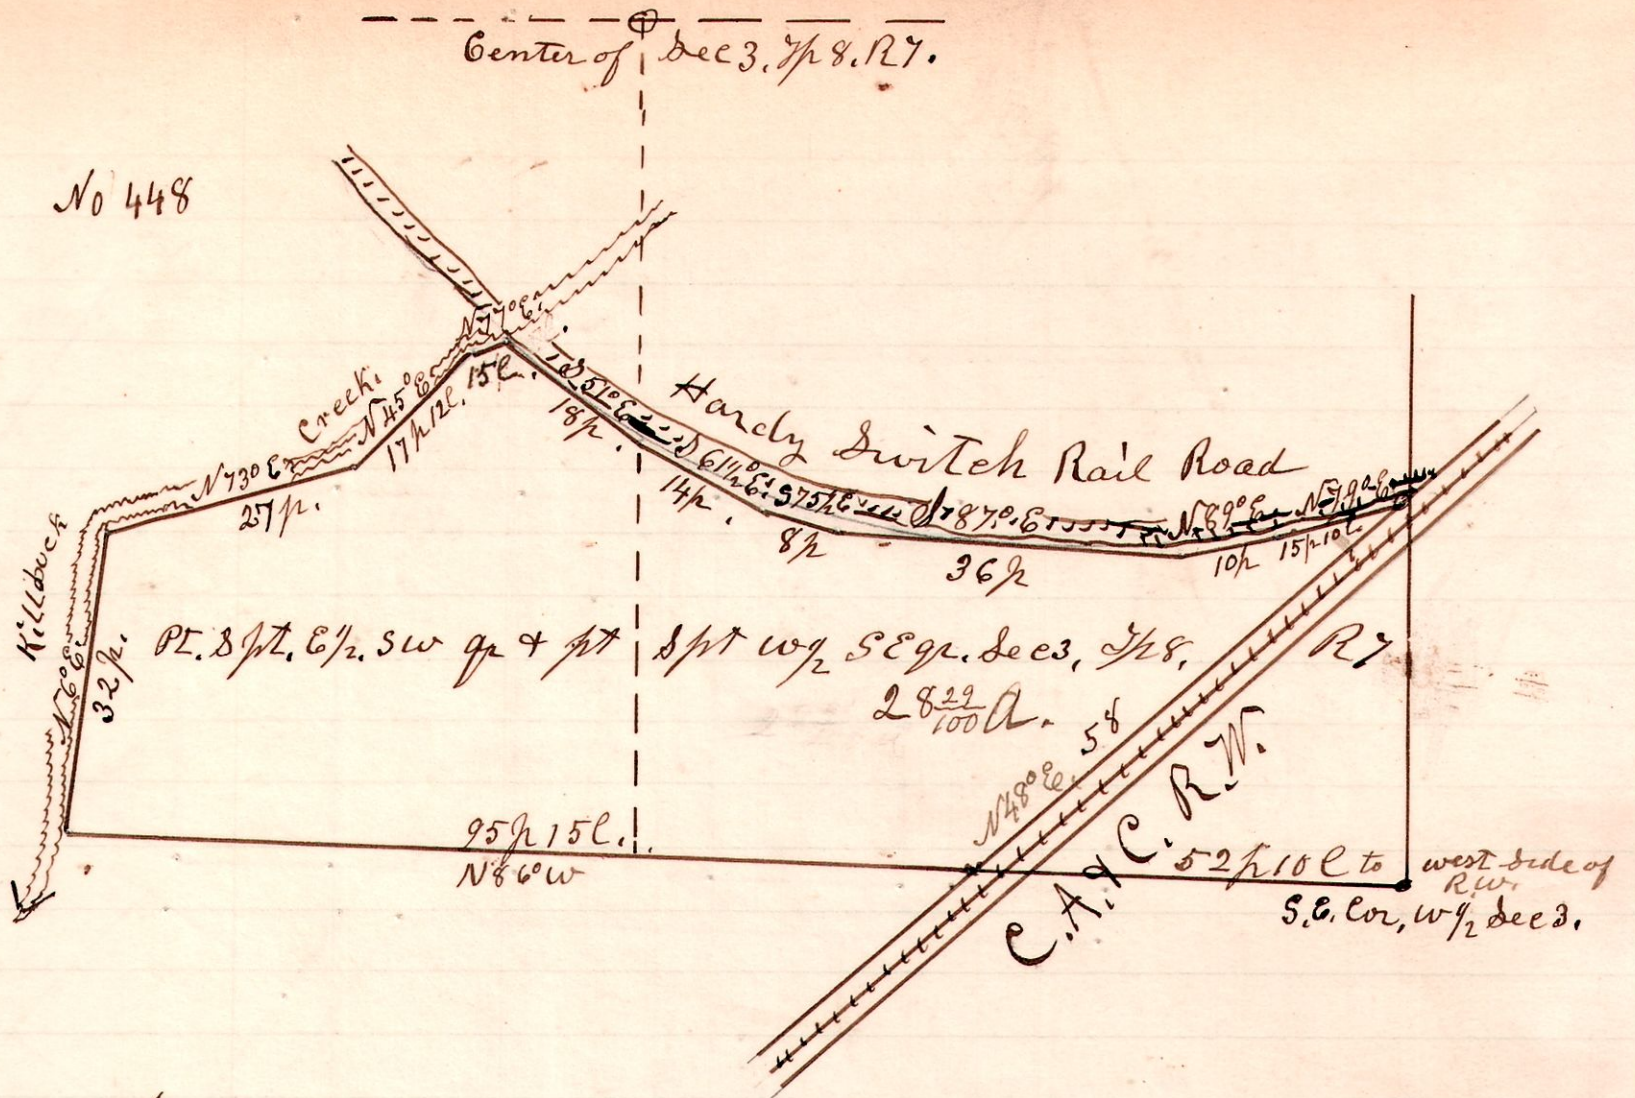 Center of Sec 3, Tp 8. R 7.
No 448
N 77° E.
15 l.
Creek.
N 45° E
17 p 12 l.
N 73° E
27 p.
Killbuck
N 6° E
32 p.
S 51° E
18 p.
Hardy Switch Rail Road
S 61½° E.
14 p.
S 75½ E
8 p
S. 87°. E
36 p
N 89° E
10 p
N 79° E
15 p 10 l.
Pt. S pt. E ½. SW qr & pt S pt W ½ SE qr. Sec 3, Tp 8, R 7
28 29/100 A.
58
N 48° E.
C. A. & C. R. W.
95 p 15 l.
N 86° W
52 p 10 l to west side of
R.W.
S. E. Cor, W ½ Sec 3.